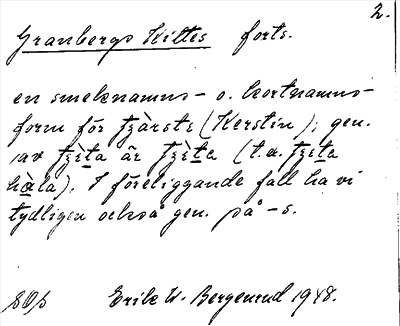 2.
Granbergs Kittes forts.
en smeknamns- o. kortnamns-
form för tzàrsts (Kerstin); gen.
av tzìta är tzìta (t.ex. tzita
hàla). I föreliggande fall ha vi
tydligen också gen. på -s.
Erik W. Bergenrud 1948.